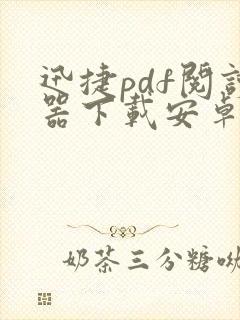 迅捷pdf閱
器下載安卓
奶茶三分糖呦